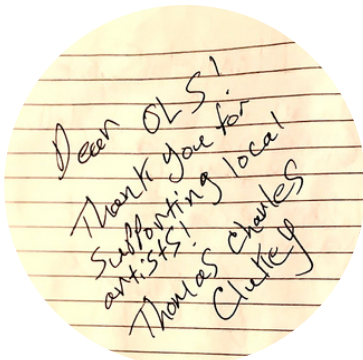 Dear OLS!
Thank you for
supporting local
artists!
Thomas Charles
Clukey